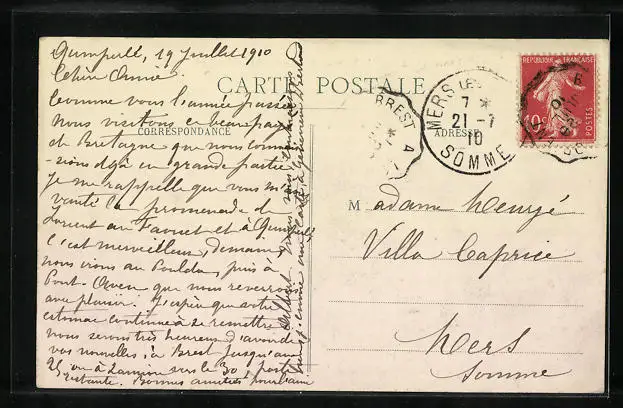 Quimperlé, 19 Juillet 1910
Chère Amie
Comme vous l'année passée
Nous visitons ce beau pays
de Bretagne que nous connais-
-sions déjà en grande partie
Je me rappelle que vous m'a-
vanté la promenade de
Lorient au Faouet et à Quimperlé
c'est merveilleux, demain
nous irons au Pouldu, puis à
Pont-Aven que nous reverrons
avec plaisir. J'espère que votre
estomac continue à se remettre
nous serons très heureux d'avoir de
vos nouvelles à Brest jusqu'au
25, ou à Lannion vers le 30, poste
restante. Bonnes amitiés pour
CARTE POSTALE
CORRESPONDANCE
ADRESSE
BREST A
MERS LES
7 *
21 - 7
10
SOMME
RÉPUBLIQUE FRANÇAISE
10c
POSTES
Madame
Villa Caprice
Mers
Somme